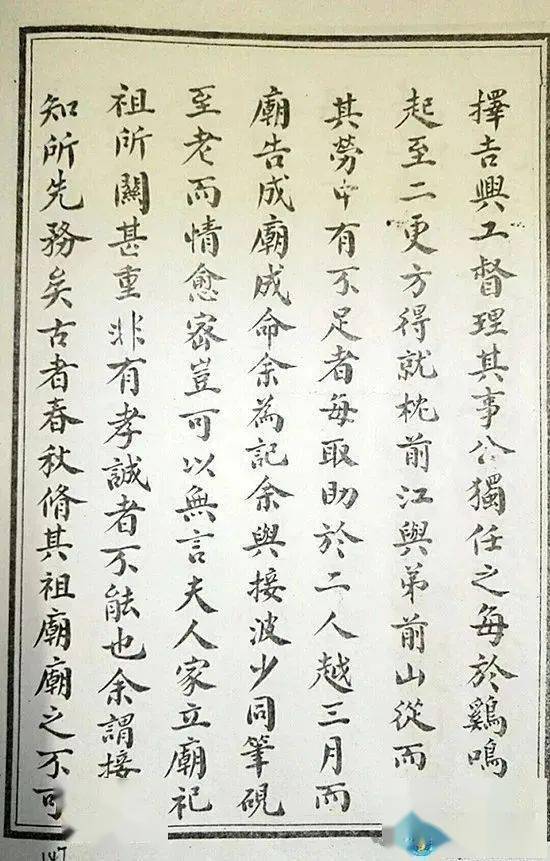 擇吉興工督理其事公獨任之每於鷄鳴
起至二更方得就枕前江與弟前山從而
其勞中有不足者每取助於二人越三月而
廟告成廟成命余為記余與接波少同筆硯
至老而情愈密豈可以無言夫人家立廟祀
祖所關甚重非有孝誠者不能也余謂接
知所先務矣古者春秋脩其祖廟廟之不可
147